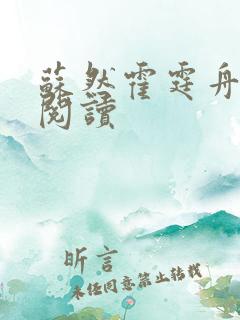 蘇然霍霆舟
閱讀
昕言
未经同意禁止转载